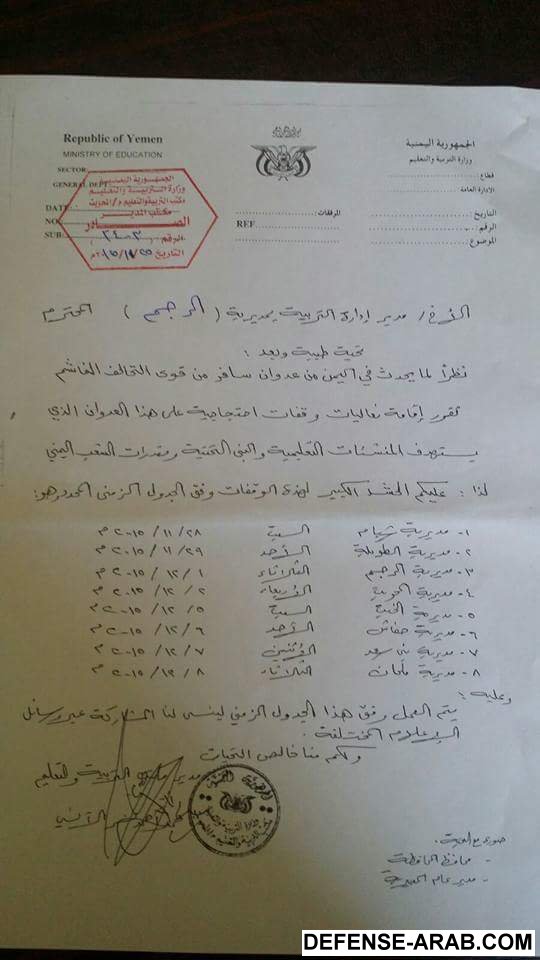 Republic of Yemen
MINISTRY OF EDUCATION
SECTOR:
GENERAL DEPT
DATE
NO
SUB:
REF
الجمهورية اليمنية
وزارة التربية والتعليم
قطاع :
الادارة العامة
التاريخ :
الرقم :
الموضوع :
المرفقات :
الجمهورية اليمنية
وزارة التربية والتعليم
مكتب التربية والتعليم م/المحويت
مكتب المدير
الصادر
الرقم
التاريخ ٢٠١٥/١١/٢٥م
الأخ / مدير إدارة التربية بمديرية ( الرجم ) المحترم
تحية طيبة وبعد :
نظراً لما يحدث في اليمن من عدوان سافر من قوى التحالف الغاشم
تقرر إقامة فعاليات وقفات احتجاجية على هذا العدوان الذي
يستهدف المنشئات التعليمية والبنى التحتية ومقدرات الشعب اليمني
لذا : عليكم الحشد الكبير لهذه الوقفات وفق الجدول الزمني المحدد وهو:
١- مديرية شبام السبت ٢٨ / ١١ / ٢٠١٥م
٢- مديرية الطويلة الأحد ٢٩ / ١١ / ٢٠١٥م
٣- مديرية الرجم الثلاثاء ١ / ١٢ / ٢٠١٥م
٤- مديرية المحويت الأربعاء ٢ / ١٢ / ٢٠١٥م
٥- مديرية الخبت السبت ٥ / ١٢ / ٢٠١٥م
٦- مديرية حفاش الأحد ٦ / ١٢ / ٢٠١٥م
٧- مديرية بني سعد الاثنين ٧ / ١٢ / ٢٠١٥م
٨- مديرية ملحان الثلاثاء ٨ / ١٢ / ٢٠١٥م
وعليه :
يتم العمل وفق هذا الجدول الزمني ليتسنى لنا المشاركة عبر وسائل
الإعلام المختلفة .
ولكم منا خالص التحيات
مدير التربية والتعليم
صورة مع التحية
- محافظ المحافظة
- مدير عام المديرية
DEFENSE-ARAB.COM